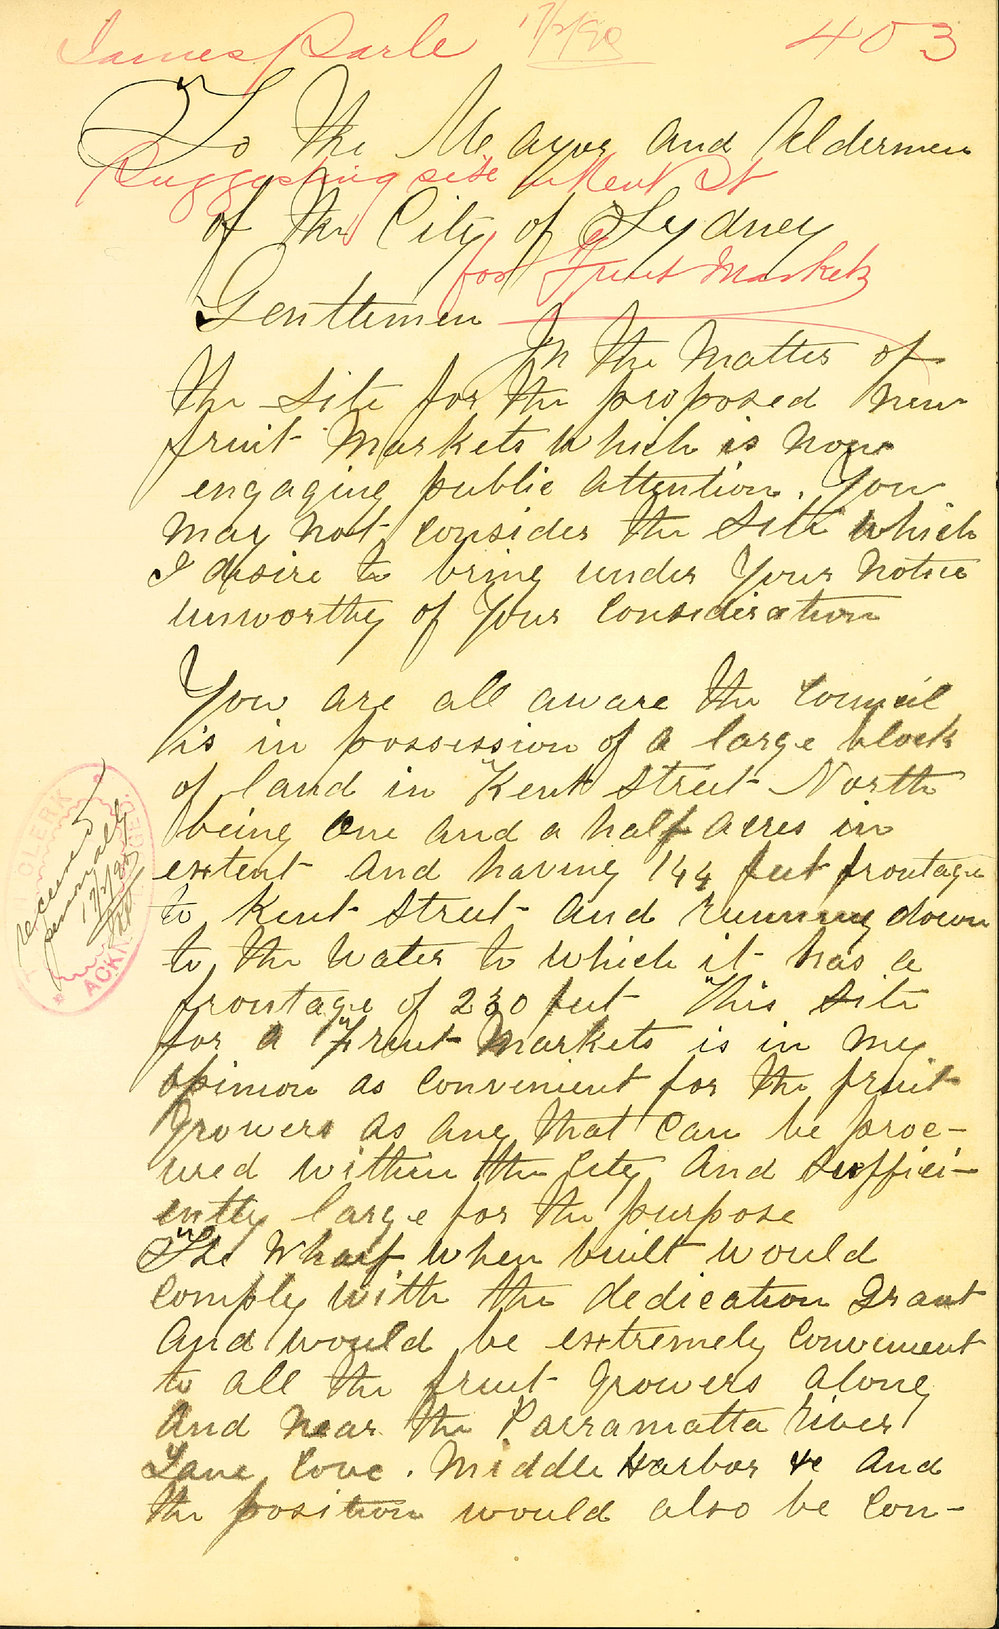 James Earle 17/2/90 403
To the Mayor and Aldermen
Suggesting site in Kent St
of the City of Sydney
for Fruit Markets
Gentlemen
In the Matter of
the Site for the proposed New
fruit Markets which is now
engaging public Attention. You
May Not Consider the Site which
I desire to bring under Your Notice
unworthy of Your Consideration
You are all aware the Council
is in possession of a large block
of land in Kent Street North
being One and a half acres in
extent and having 144 feet frontage
to Kent Street and running down
to the Water to which it has a
frontage of 230 feet This Site
for a Fruit Markets is in my
opinion as Convenient for the fruit
Growers as any that Can be proc-
ured within the City and Suffici-
ently large for the purpose
The Wharf when built would
Comply with the dedication Grant
And would be extremely Convenient
to all the fruit Growers along
And Near the Parramatta River
Lane Cove. Middle Harbor &c And
the position would also be Con-
received
personally
17/2/90
CLERK
ACKN